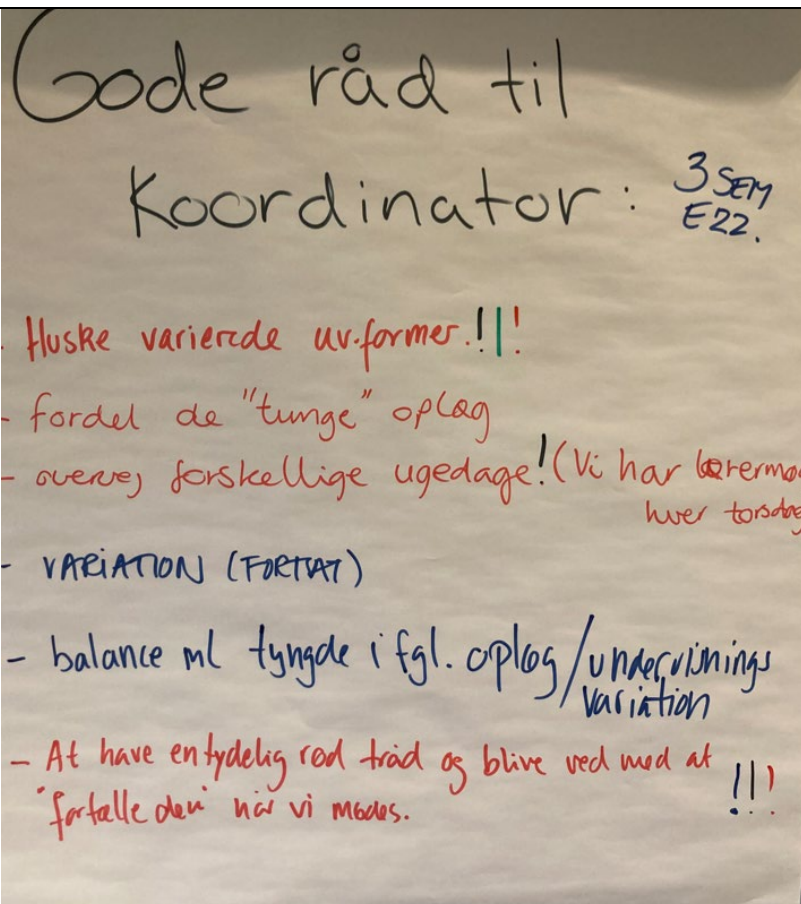 Gode råd til
Koordinator:
3 SEM
E22.
. Huske varierede uv.former.!!!
- fordel de "tunge" oplæg
- overvej forskellige ugedage! (Vi har lærermø
hver torsdag
- VARIATION (FORMAT)
- balance ml tyngde i fgl. oplæg/undervisnings
variation
- At have en tydelig rød tråd og blive ved med at
"fortælle den" når vi mødes.
!!!